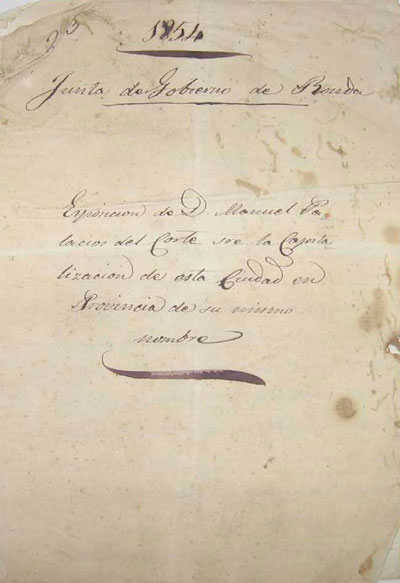 23
1854
Junta de Gobierno de Ronda
Esposicion de D. Manuel Pa
lacios del Corte sre. la Capita
lizacion de esta Ciudad en
Provincia de su mismo
nombre